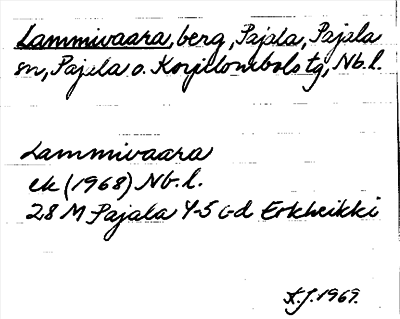 Lammivaara, berg, Pajala, Pajala
sn, Pajala o. Korpilombolo tg, Nb.l.
Lammivaara
ek (1968) Nb.l.
28 M Pajala 4-5 c-d Erkheikki
A.J. 1969.